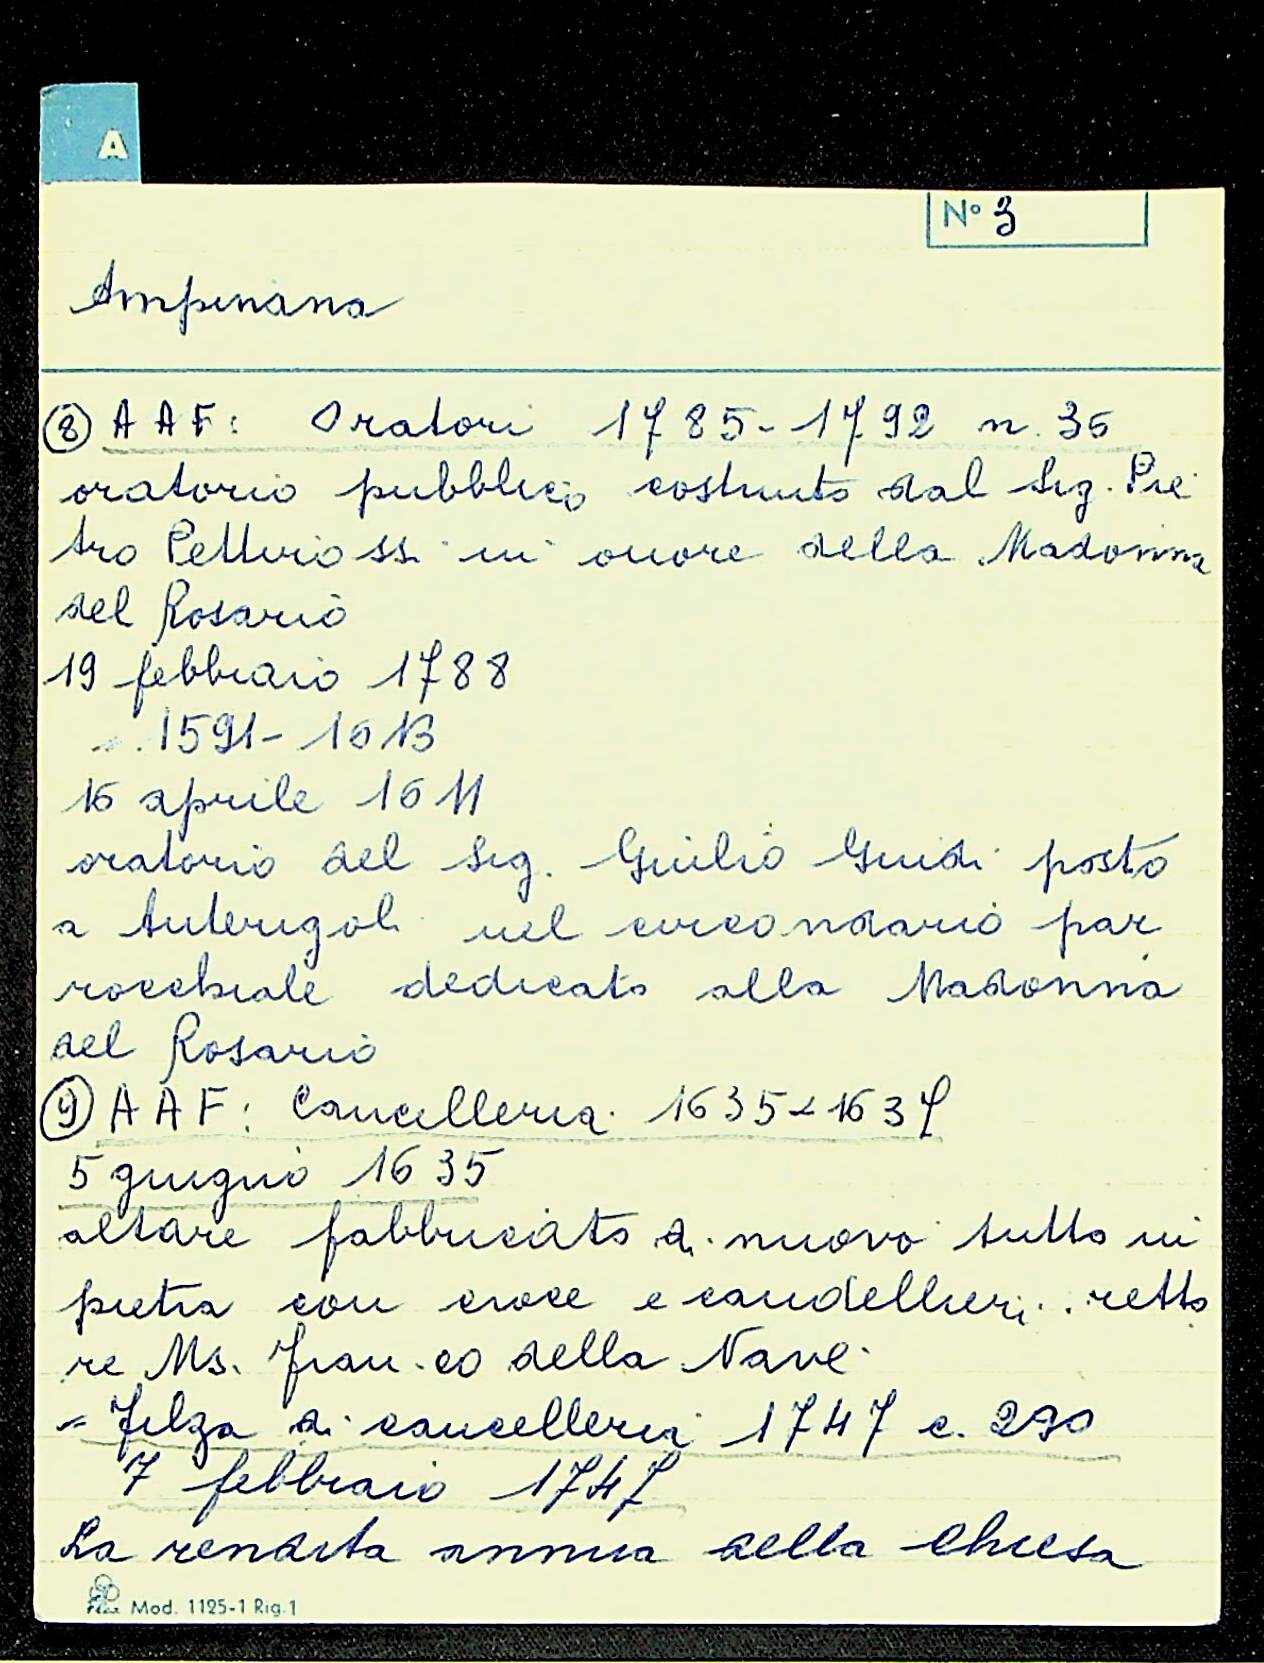 A
N° 3
Ampinana
8 AAF: Oratori 1785-1792 n. 36
oratorio pubblico costruito dal Sig. Pie
tro Pettirossi in onore della Madonna
del Rosario
19 febbraio 1788
1591-1613
16 aprile 1611
oratorio del Sig. Giulio Guidi posto
a nel circondario par
rocchiale dedicato alla Madonna
del Rosario
9 AAF: Cancelleria 1635-1637
5 giugno 1635
altare fabbricato di nuovo tutto in
pietra con croce e candellieri.. retto
re Ms. Fran.co della Nave
= Filza di cancelleria 1747 c. 290
7 febbraio 1747
La rendita annua della Chiesa
Mod. 1125-1 Rig. 1